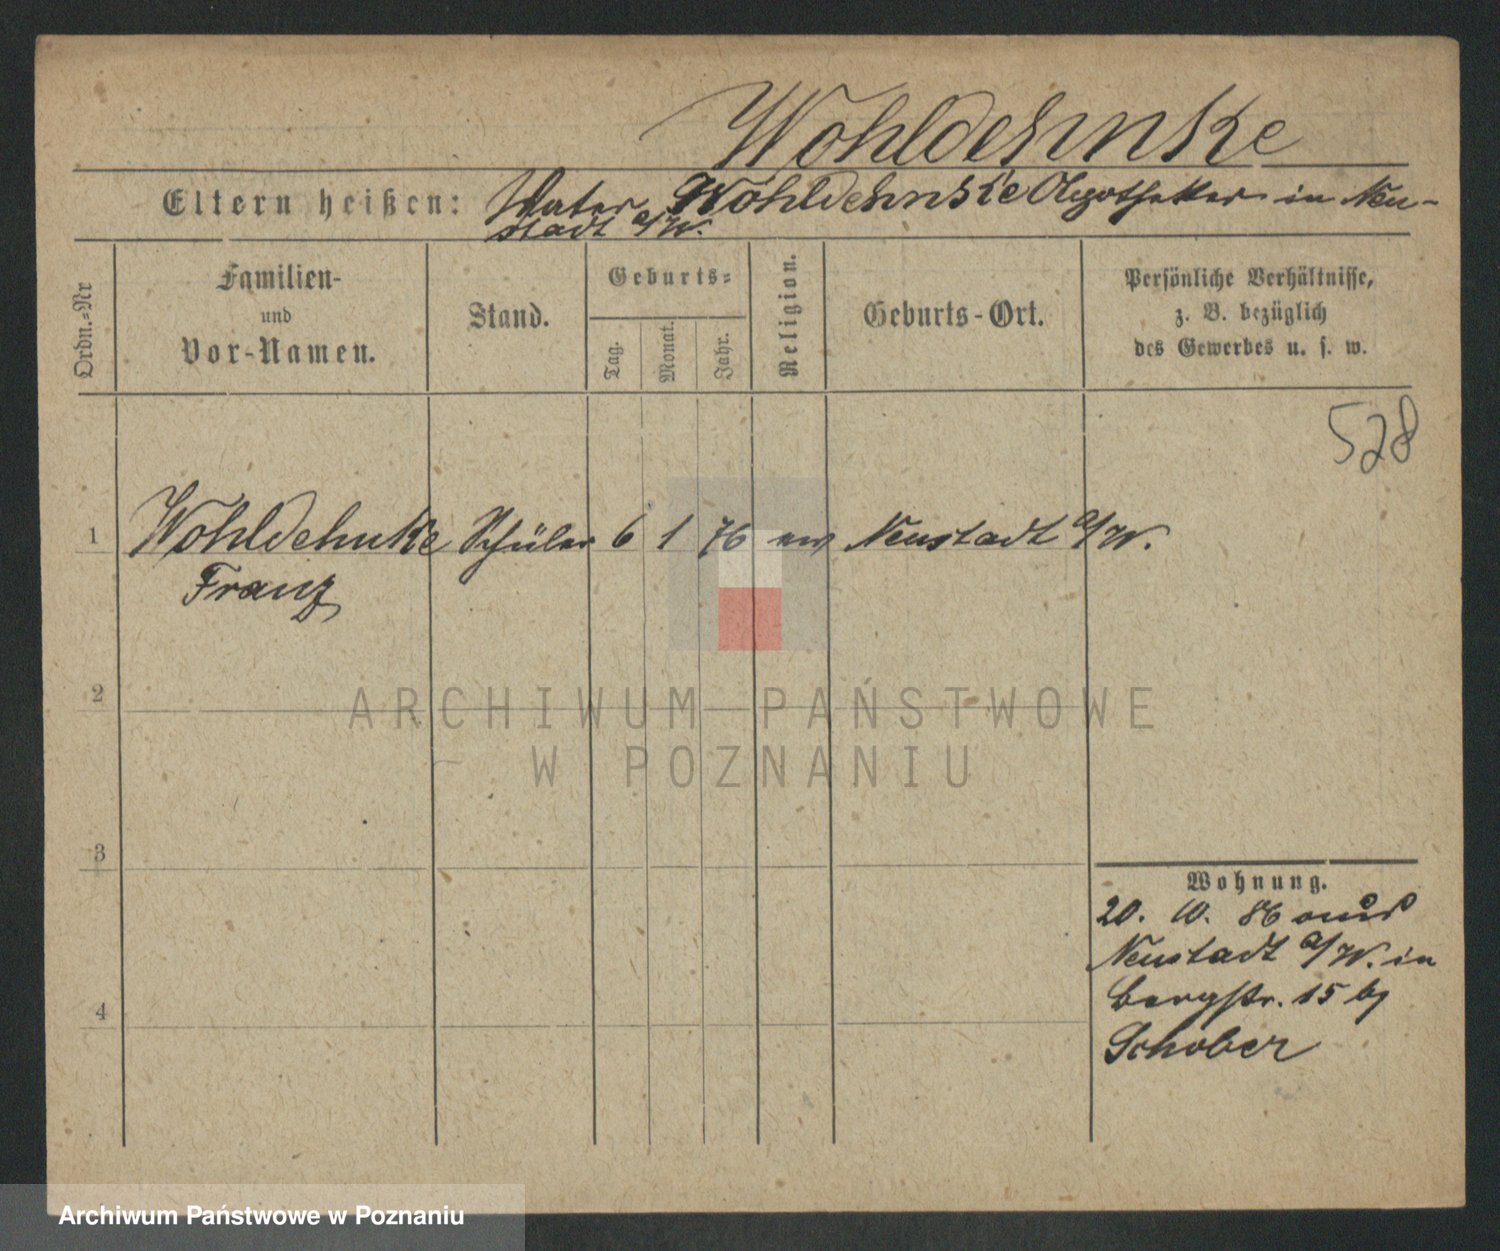 Wohldehnke
Eltern heißen: Vater Wohldehnke Apotheker in Neu-
stadt a/W.
Ordn.-Nr
Familien-
und
Vor-Namen.
Stand.
Geburts-
Tag.
Monat.
Jahr.
Religion.
Geburts-Ort.
Persönliche Verhältnisse,
z. B. bezüglich
des Gewerbes u. s. w.
528
1 Wohldehnke Schüler 6 1 76 ev Neustadt a/W.
Franz
2
ARCHIWUM PAŃSTWOWE
W POZNANIU
3
Wohnung.
20. 10. 86 aus
Neustadt a/W. in
4
Bergstr. 15 bj
Schober
Archiwum Państwowe w Poznaniu